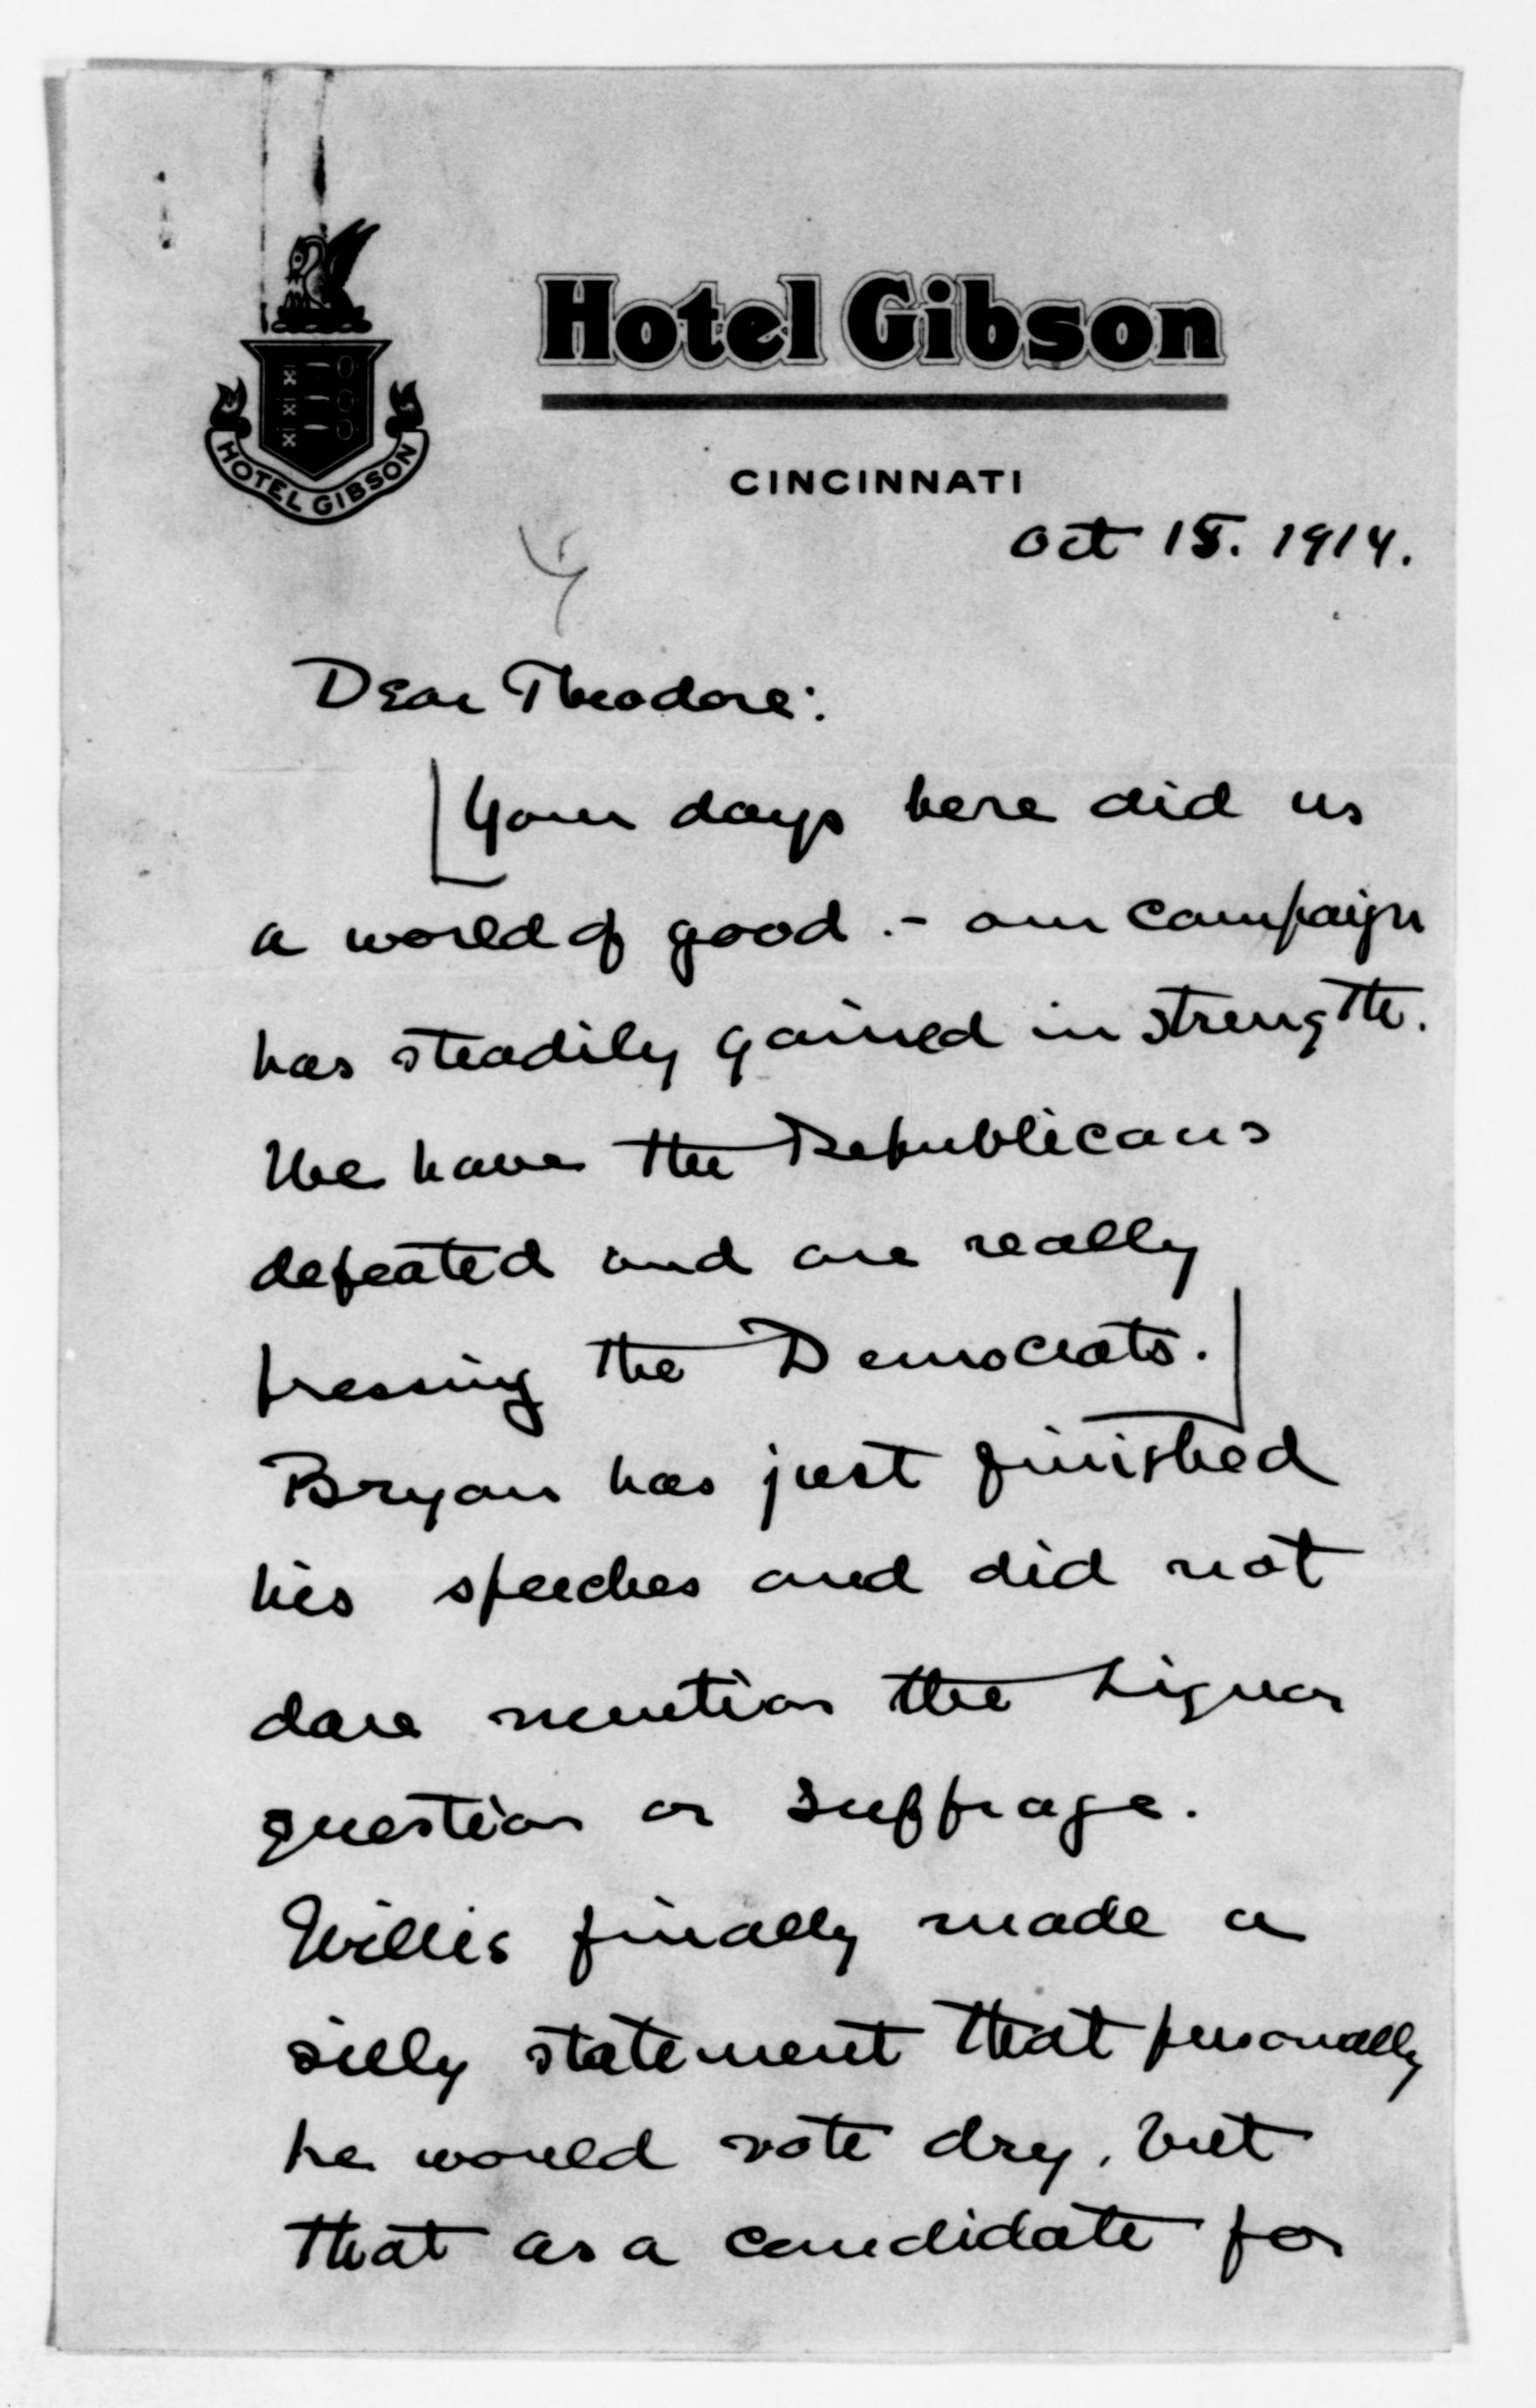 HOTEL GIBSON
Hotel Gibson
CINCINNATI
Oct 15. 1914.
Dear Theodore:
[Your days here did us
a world of good. - our campaign
has steadily gained in strength.
We have the Republicans
defeated and are really
pressing the Democrats.]
Bryan has just finished
his speeches and did not
dare mention the Liquor
question or Suffrage.
Willis finally made a
silly statement that personally
he would vote dry, but
that as a candidate for